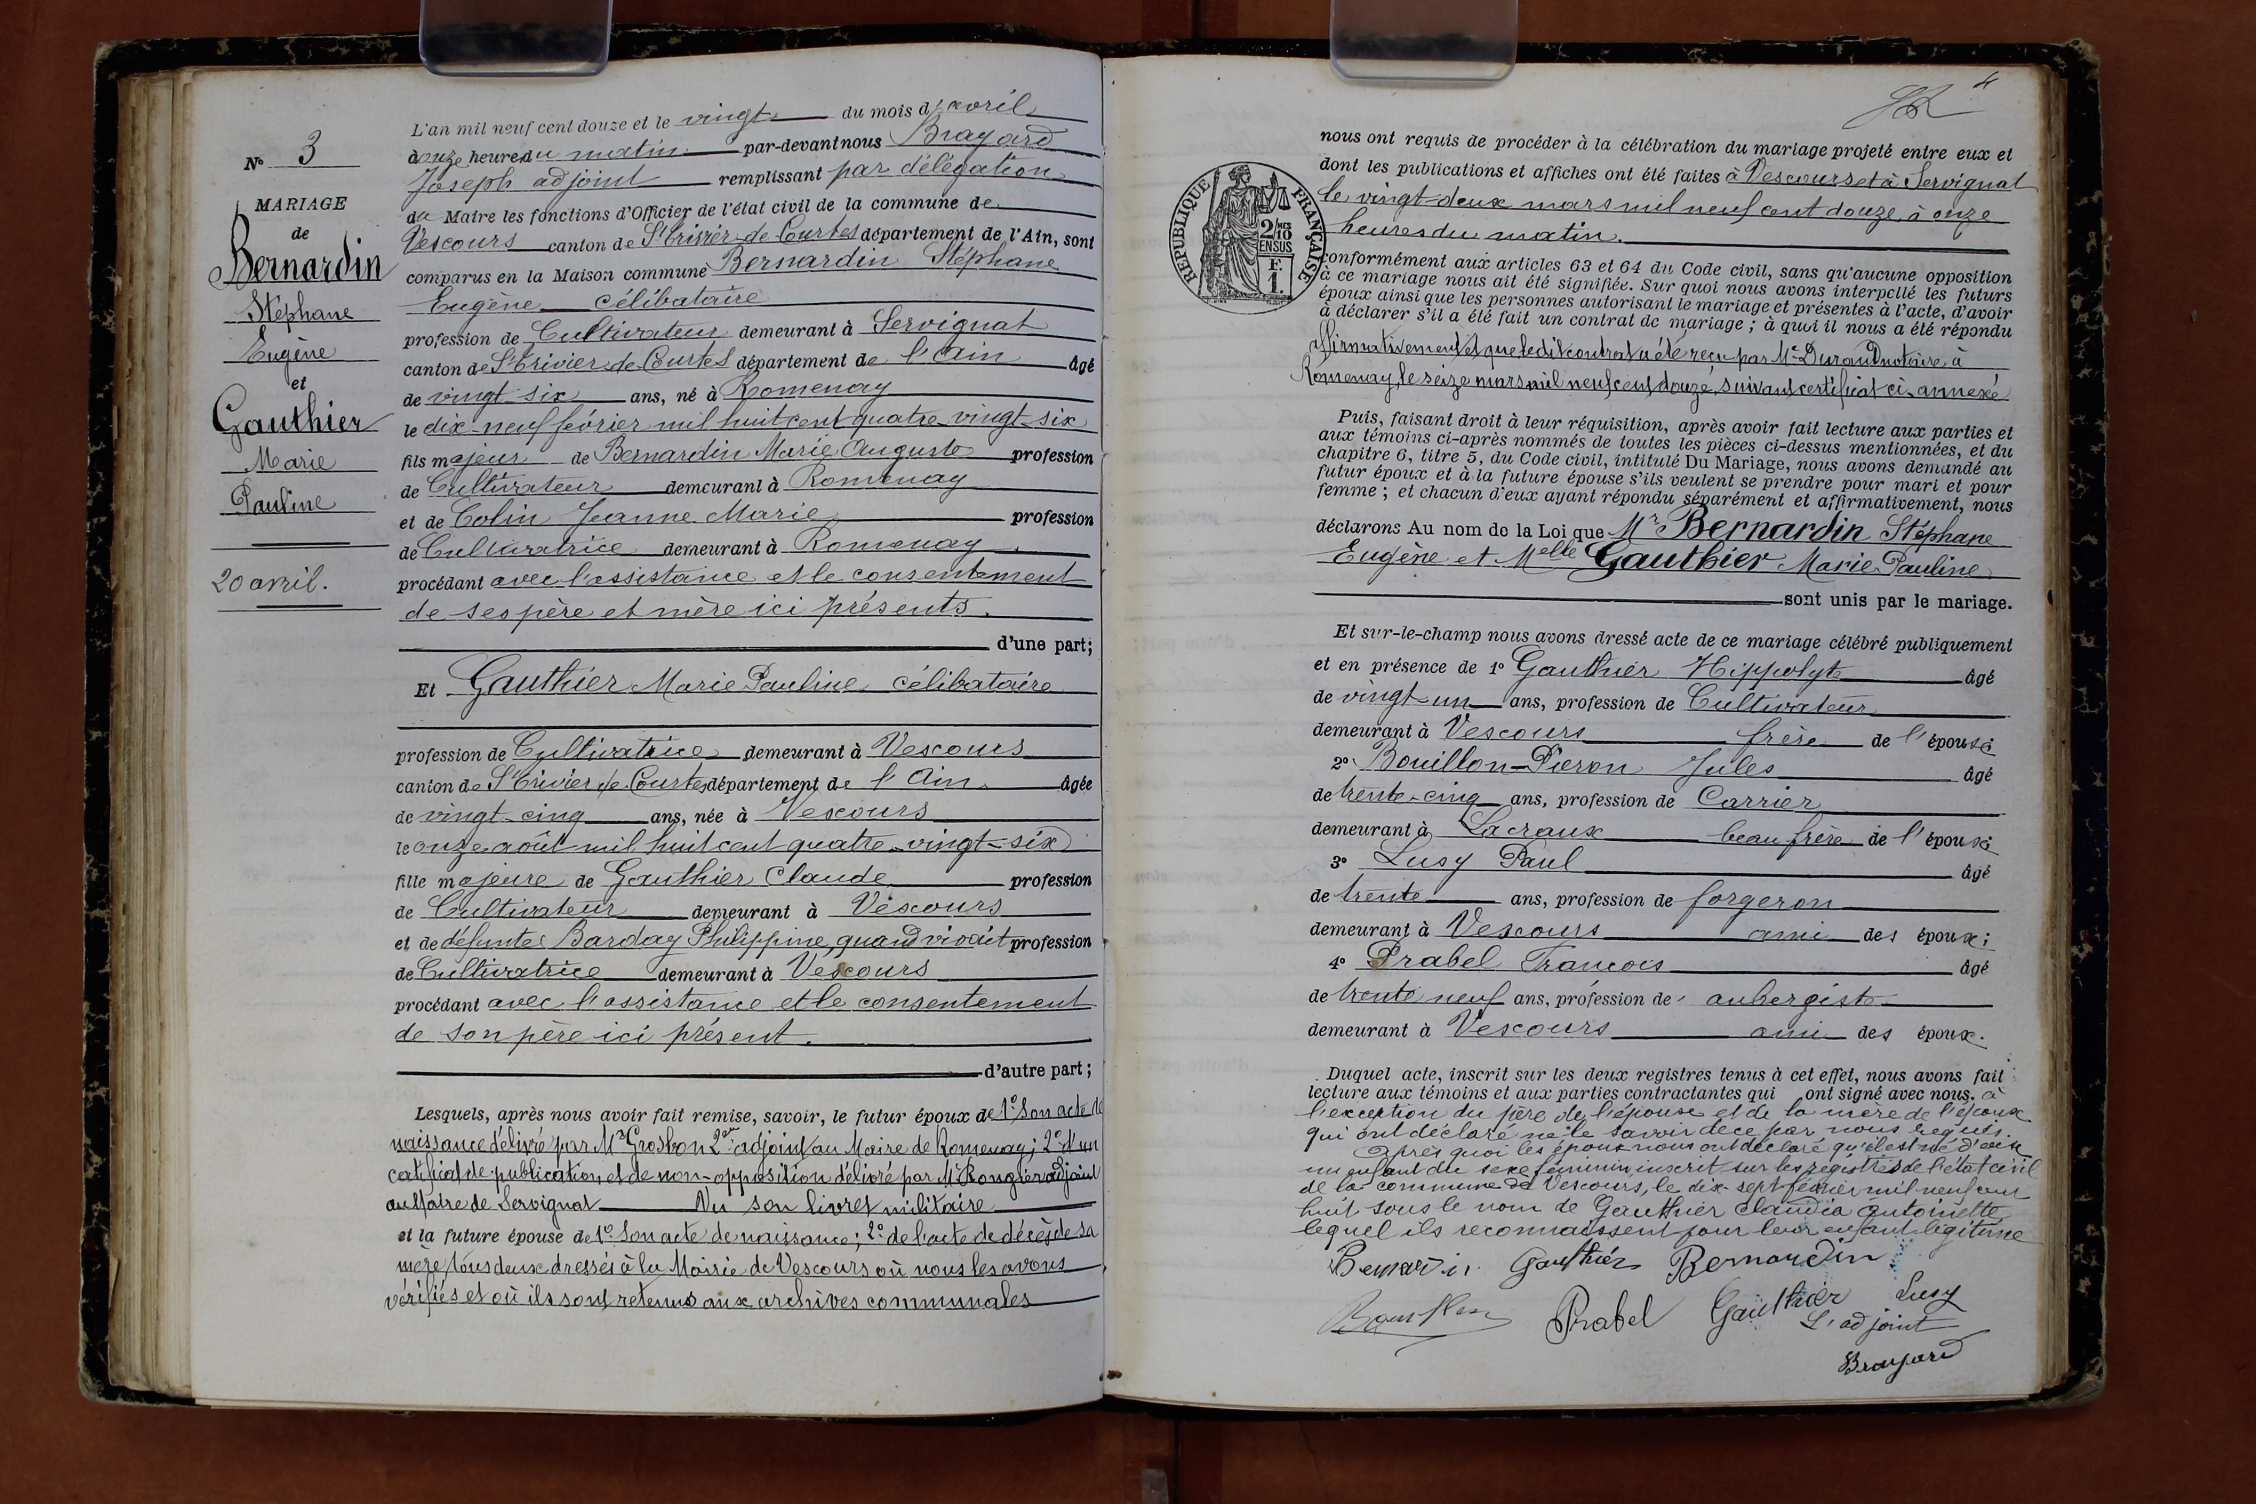 N° 3
MARIAGE
de
Bernardin
Stéphane
Eugène
et
Gauthier
Marie
Pauline
20 avril.
L'an mil neuf cent douze et le vingt du mois d'avril
à onze heures du matin par-devant nous Brayard
Joseph adjoint remplissant par délégation
du Maire les fonctions d'Officier de l'état civil de la commune de
Vescours canton de St Trivier de Courtes département de l'Ain, sont
comparus en la Maison commune Bernardin Stéphane
Eugène célibataire
profession de Cultivateur demeurant à Servignat
canton de St Trivier de Courtes département de l'Ain âgé
de vingt-six ans, né à Romenay
le dix-neuf février mil huit cent quatre-vingt-six
fils majeur de Bernardin Marie Auguste profession
de Cultivateur demeurant à Romenay
et de Colin Jeanne Marie profession
de Cultivatrice demeurant à Romenay.
procédant avec l'assistance et le consentement
de ses père et mère ici présents.
d'une part;
Et Gauthier Marie Pauline célibataire
profession de Cultivatrice demeurant à Vescours
canton de St Trivier de Courtes département de l'Ain. âgée
de vingt-cinq ans, née à Vescours
le onze août mil huit cent quatre-vingt-six
fille majeure de Gauthier Claude profession
de Cultivateur demeurant à Vescours
et de défunte Barday Philippine, quand vivait profession
de Cultivatrice demeurant à Vescours
procédant avec l'assistance et le consentement
de son père ici présent.
d'autre part;
Lesquels, après nous avoir fait remise, savoir, le futur époux de 1° Son acte de
naissance délivré par Mr Grosbon 2e adjoint au Maire de Romenay; 2° d'un
certificat de publication et de non-opposition délivré par Mr Rongier adjoint
au Maire de Servignat Vu son livret militaire
et la future épouse de 1° Son acte de naissance; 2° de l'acte de décès de sa
mère tous deux dressés à la Mairie de Vescours où nous les avons
vérifiés et où ils sont retenus aux archives communales
4
nous ont requis de procéder à la célébration du mariage projeté entre eux et
dont les publications et affiches ont été faites à Vescours et à Servignat
le vingt-deux mars mil neuf cent douze à onze
heures du matin.
RÉPUBLIQUE FRANÇAISE
2/10 EN SUS
F.
1.
conformément aux articles 63 et 64 du Code civil, sans qu'aucune opposition
à ce mariage nous ait été signifiée. Sur quoi nous avons interpellé les futurs
époux ainsi que les personnes autorisant le mariage et présentes à l'acte, d'avoir
à déclarer s'il a été fait un contrat de mariage; à quoi il nous a été répondu
affirmativement et que ledit contrat a été reçu par Me Durand notaire à
Romenay, le seize mars mil neuf cent douze, suivant certificat ci-annexé
Puis, faisant droit à leur réquisition, après avoir fait lecture aux parties et
aux témoins ci-après nommés de toutes les pièces ci-dessus mentionnées, et du
chapitre 6, titre 5, du Code civil, intitulé Du Mariage, nous avons demandé au
futur époux et à la future épouse s'ils veulent se prendre pour mari et pour
femme; et chacun d'eux ayant répondu séparément et affirmativement, nous
déclarons Au nom de la Loi que Mr Bernardin Stéphane
Eugène et Melle Gauthier Marie Pauline
sont unis par le mariage.
Et sur-le-champ nous avons dressé acte de ce mariage célébré publiquement
et en présence de 1° Gauthier Hippolyte âgé
de vingt-un ans, profession de Cultivateur
demeurant à Vescours frère de l'épouse
2° Bouillon-Pieron Jules âgé
de trente-cinq ans, profession de Carrier
demeurant à Lacraux beau frère de l'épouse
3° Lusy Paul âgé
de trente ans, profession de forgeron
demeurant à Vescours ami des époux;
4° Prabel François âgé
de trente neuf ans, profession de aubergiste
demeurant à Vescours ami des époux.
Duquel acte, inscrit sur les deux registres tenus à cet effet, nous avons fait
lecture aux témoins et aux parties contractantes qui ont signé avec nous. à
l'exception du père de l'épouse et de la mère de l'époux
qui ont déclaré ne le savoir de ce par nous requis.
Après quoi les époux nous ont déclaré qu'il est né d'eux
un enfant du sexe féminin inscrit sur les registres de l'état civil
de la commune de Vescours, le dix-sept février mil neuf cent
huit sous le nom de Gauthier Claudia Antoinette
lequel ils reconnaissent pour leur enfant légitime
Bernardin Gauthier Bernardin
Bouillon Prabel Gauthier Lusy
L'adjoint
Brayard